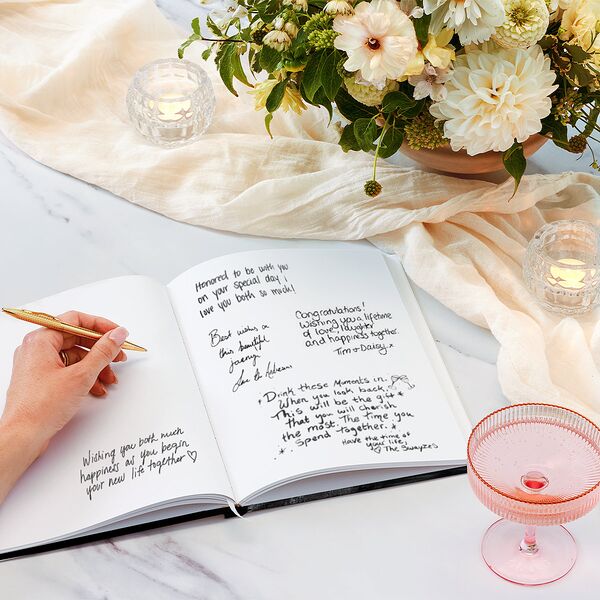 Wishing you both much
happiness as you begin
your new life together ♡
Honored to be with you
on your special day!
love you both so much!
Congratulations!
Wishing you a lifetime
of love, laughter
and happiness together.
Tim + Daisy
Best wishes on
this beautiful
journey
Drink these moments in.
When you look back
This will be the gift
that you will cherish
the most. The time you
spend together.
Have the time of
your life,
♡ The Swayzes